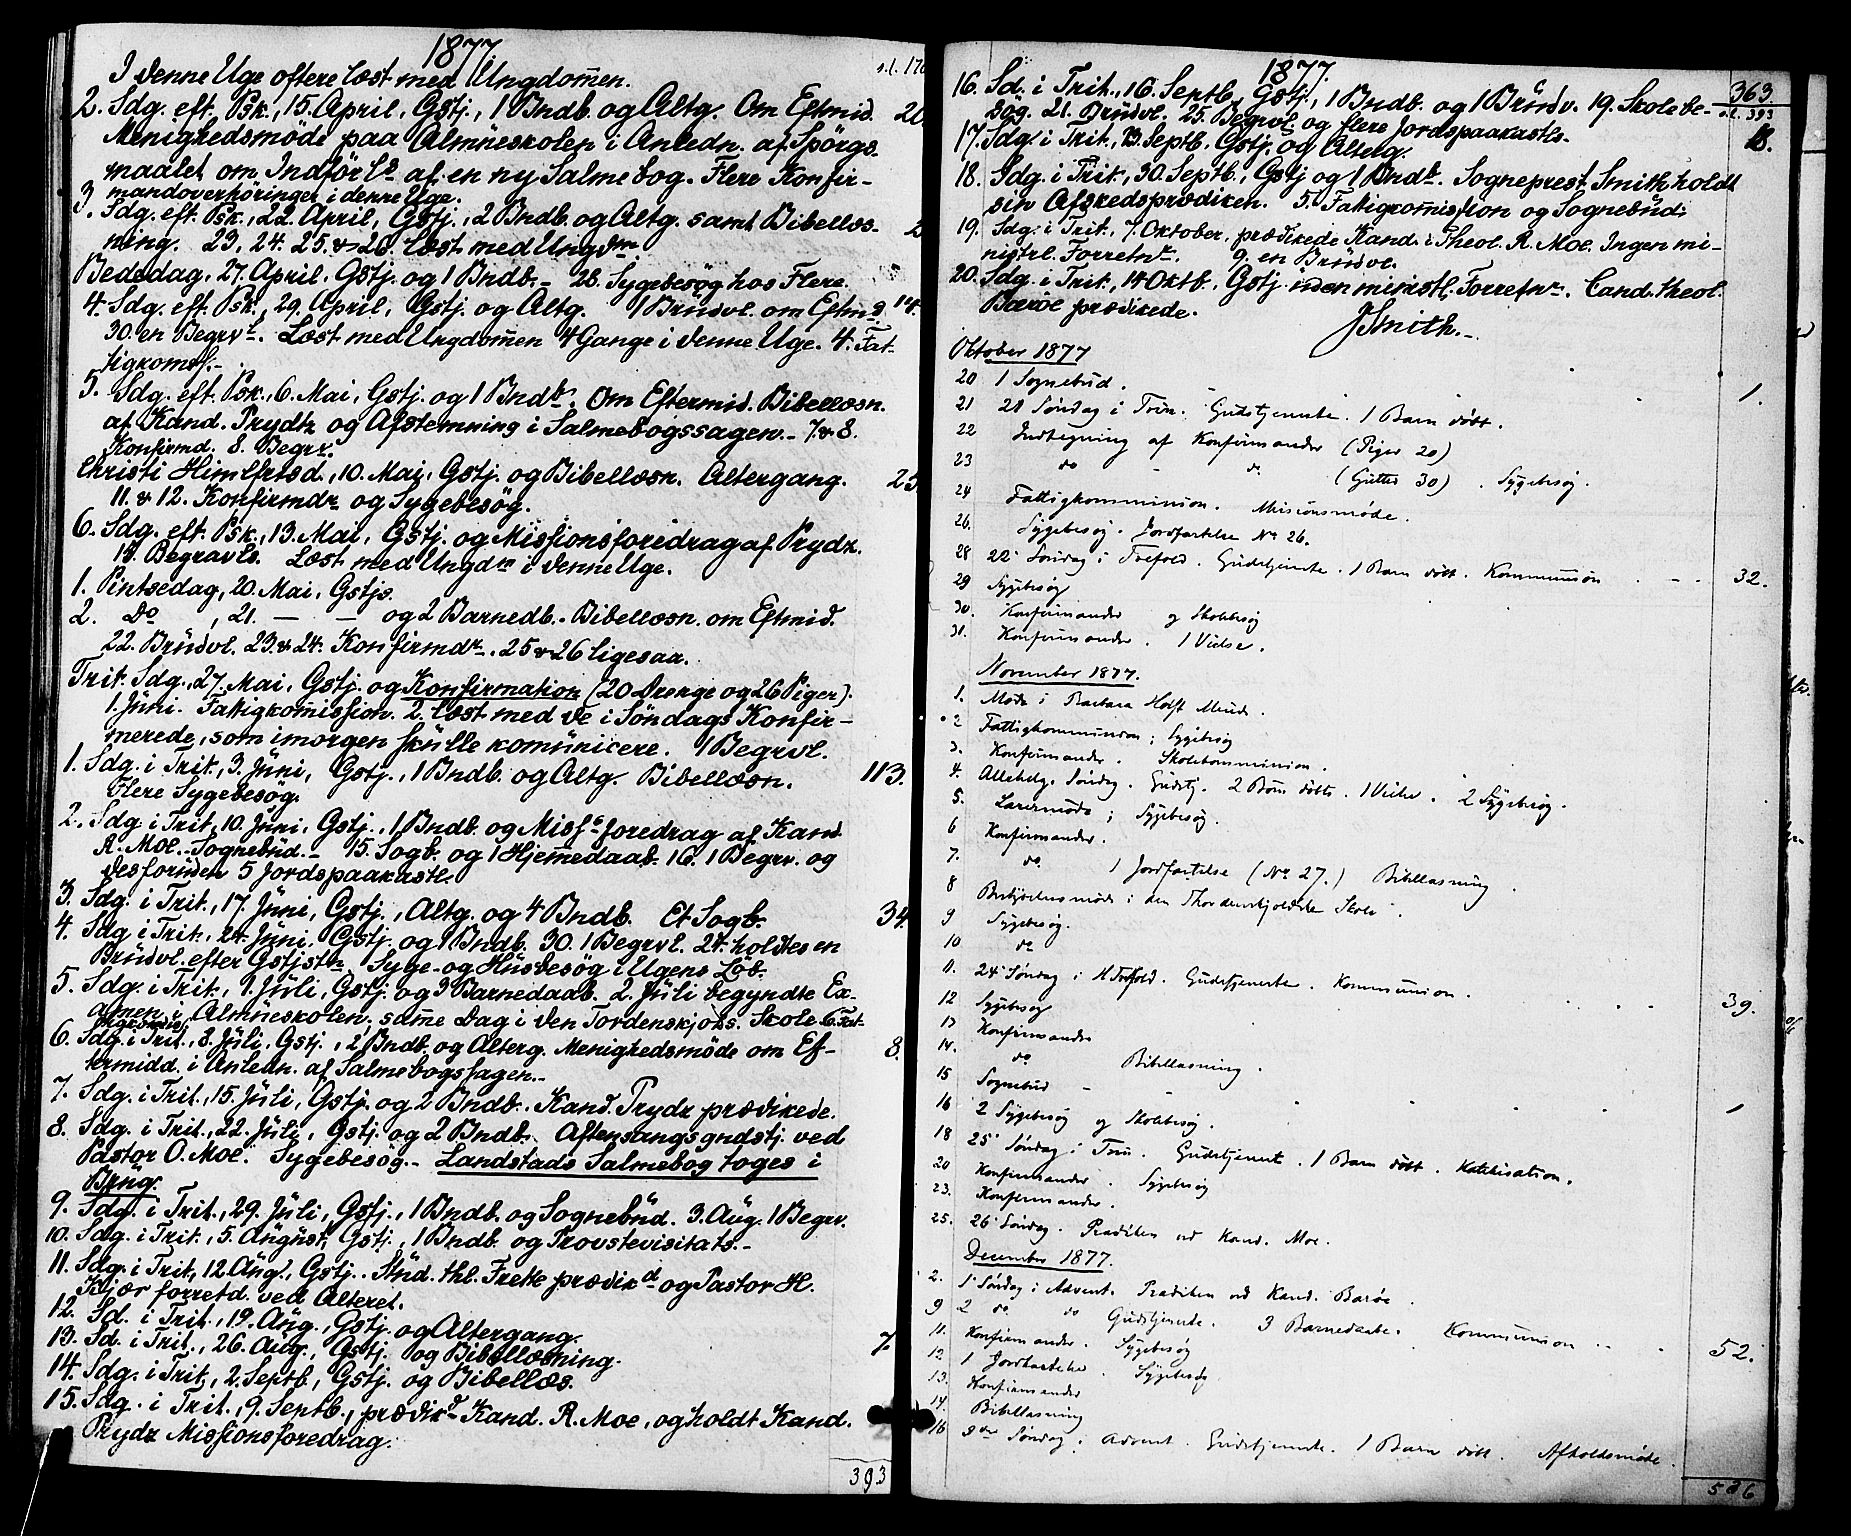 1877.
I denne Uge oftere læst med Ungdom̄en.
2. Sdg. eft. Psk., 15. April, Gstj., 1 Bndb. og Altg. Om Eftmid.
Menighedsmöde paa Almn̄eskolen i Anledn. af Spörgs-
maalet om Indförls af en ny Salmebog. Flere Konfir-
mandoverhöringer i denne Uge.
3. Sdg. eft. Psk., 22. April, Gstj., 2 Bndb. og Altg. samt Bibellæs-
ning. 23, 24. 25. & 26. læst med Ungdm
Bededag, 27. April. Gstj. og 1 Bndb. - 28. Sygebesøg hos Flere.
4. Sdg. eft. Psk., 29. April, Gstj. og Altg. 1 Brüdvl. om Eftmd. 14.
30. en Begrvl. Læst med Ungdom̄en 4 Gange i denne Uge. 4. Fat-
tigkomsf.-
5. Sdg. eft. Psk., 6. Mai, Gstj. og 1 Bndb. Om Eftermid. Bibellæsn.
af Kand. Prydz og Afstemning i Salmebogssagen. - 7. & 8.
Konfirmd. 8. Begrv.
Christi Himlfrtsd., 10. Mai, Gstj. og Bibellæsn. Altergang. 25
11. & 12. Konfirmdr og Sygebesøg.
6. Sdg. eft. Psk., 13. Mai, Gstj. og Missionsforedrag af Prydz.
14. Begravls. Læst med Ungdm i denne Uge.
1. Pintsedag, 20. Mai, Gstjs.
2. Do , 21. — — og 2 Barnedb. - Bibellæsn. om Eftmid.
22. Brüdvl. 23. & 24. Konfirmdr. 25 & 26 ligesaa.
Trit. Sdg., 27. Mai, Gstj. og Konfirmation (20 Drenge og 26 Piger).
1. Jüni. Fattigkom̄ission. 2. læst med de i Söndags Konfir-
merede, som imorgen skülle kom̄ünicere. 1 Begrvl.
1. Sdg. i Trit., 3. Jüni, Gstj., 1 Bndb. og Altg. Bibellæsn. 113.
Flere Sygebesøg.
2. Sdg. i Trit., 10. Jüni, Gstj., 1 Bndb. og Missforedrag af Kand
R. Moe. - Sognebüd. - 15. Sogb. og 1 Hjem̄edaab. 16. 1 Begrv. og
desforüden 5 Jordspaakastl.
3. Sdg. i Trit., 17. Jüni, Gstj., Altg. og 4 Bndb. Et Sogb. 34.
4. Sdg i Trit., 24. Jüni, Gstj. og 1 Bndb. 30. 1 Begrvl. 24. holdtes en
Brüdvl. efter Gstjstn. Syge- og Hüsbesøg i Ugens Löb.
5. Sdg. i Trit., 1. Jüli, Gstj. og 3 Barnedaab. 2. Jüli begyndte Ex-
amen i Almn̄eskolen; sam̄e Dag i den Tordenskjolds. Skole. 6. Fat-
6. Sdg. i Trit., 8. Jüli, Gstj., 2 Bndb. og Alterg. Menighedsmöde om Ef- 8.
termidd. i Anledn. af Salmebogssagen. -
7. Sdg. i Trit., 15. Jüli, Gstj. og 2 Bndb. Kand. Prydz prædikede.
8. Sdg. i Trit., 22. Jüli, Gstj. og 2 Bndb. Aftensangsgndstj. ved
Pastor O. Moe. Sygebesøg. - Landstads Salmebog toges i
Brüg.
9. Sdg. i Trit., 29. Jüli, Gstj., 1 Bndb. og Sognebüd. 3. Aüg. 1 Begrv.
10. Sdg. i Trit., 5. Aügüst, Gstj., 1 Bndb. og Provstevisitats. -
11. Sdg. i Trit, 12. Aüg., Gstj. Stüd. thl. Frette prædikd og Pastor H.
Kjær forretd. ved Alteret.
12. Sd. i Trit., 19. Aüg., Gstj. og Altergang. 7.
13. Sd. i Trit., 26. Aüg., Gstj. og Bibellæsning.
14. Sdg. i Trit., 2. Septb., Gstj. og Bibellæs.
15. Sdg. i Trit., 9. Septb., prædikd Kand. R. Moe, og holdt Kand.
Prydz Missionsforedrag.
393
1877.
363
16. Sd. i Trit., 16. Septb., Gstj., 1 Bndb. og 1 Brüdv. 19. Skolebe-
sög. 21. Brüdvl. 25. Begrvl. og flere Jordspaakastls. 393
17. Sdg. i Trit., 23. Septb. Gstj. og Alterg. 18.
18. Sdg. i Trit., 30. Septb., Gstj og 1 Bndb. Sogneprest Smith holdt
sin Afskedsprædiken. 5. Fattigkom̄ission og Sognebüd.
19. Sdg. i Trit., 7. Oktober, prædikede Kand. i Theol. R. Moe. Ingen mi-
nistrl. Forretnr. 9. en Brüdvl.
20. Sdg. i Trit., 14. Oktb., Gstj. üden ministl. Forretnr. Cand. theol.
Barøe prædikede.
JSmith. -
Oktober 1877
20 1 Sognebud. 1.
21 21 Søndag i Trin. Gudstjeneste. 1 Barn døbt.
22 Indtegning af Konfirmander (Piger 20)
23 do - do (Gutter 30). Sygebesøg.
24 Fattigkommission. Missionsmøde.
26. Sygebesøg. Jordfæstelse No 26.
28 22' Søndag i Trefold. Gudstjeneste. 1 Barn døbt. Kommunion 32.
29 Sygebesøg
30. Konfirmander og Skolebesøg
31. Konfirmander. 1 Vielse.
November 1877.
1. Møde i Barbara Holst Minde.
2 Fattigkommission; Sygebesøg
3. Konfirmander. Skolekommission.
4. Allehelg. Søndag. Gudstj. 2 Børn døbte. 1 Vielse. 2 Sygebesøg.
5. Lærermøde; Sygebesøg.
6 Konfirmander.
7. do. 1 Jordfæstelse (No 27.) Bibellæsning.
8 Bestyrelsesmøde i den Thordenskjoldske Skole.
9 Sygebesøg.
10 do
11. 24' Søndag i Trefold. Gudstjeneste. Kommunion. 39.
12 Sygebesøg
13 Konfirmander
14. do Bibellæsning.
15 Sognebud - 1
16 2 Sygebesøg og Skolebesøg.
18 25' Søndag i Trin. Gudstjeneste. 1 Barn døbt. Katekisation.
20 Konfirmander. Sygebesøg
23. Konfirmander.
25. 26' Søndag. Prædiken ved Kand. Moe.
December 1877.
2. 1' Søndag i Advent. Prædiken ved Kand. Barøe.
9 2 do do Gudstjeneste. 3 Barnedaabe. Kommunion 52.
11. Konfirmander. Sygebesøg
12 1 Jordfæstelse. Sygebesøg
13. Konfirmander
14. Bibellæsning
16 3die Søndag i Advent. Gudstjeneste. 1 Barn døbt. Afholdsmøde.
536